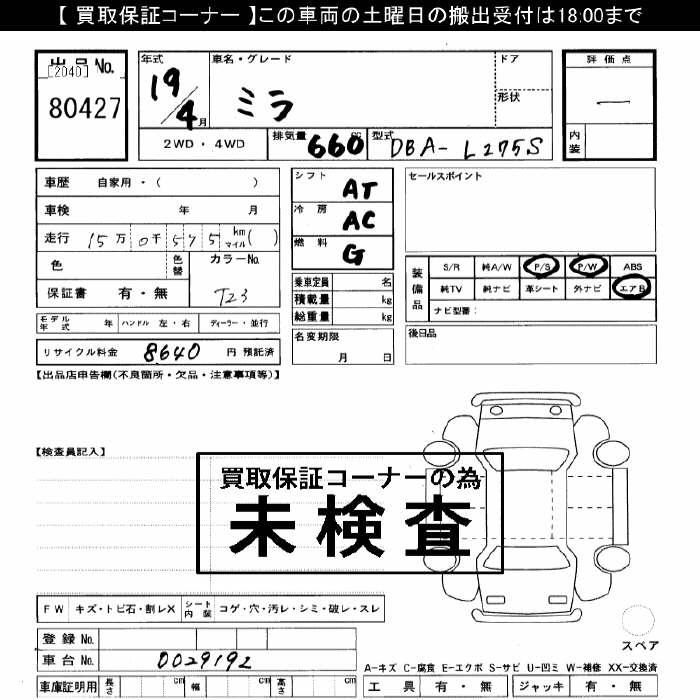 【 買取保証コーナー 】この車両の土曜日の搬出受付は18:00まで
出品No.
[2040]
80427
年式
19/4月
車名・グレード
ミラ
ドア
形状
評価点
—
内装
2WD・4WD
排気量 660 cc
型式 DBA-L275S
車歴 自家用・( )
車検 年 月
走行 15万0千575 km マイル( )
色
色替
カラーNo.
T23
保証書 有・無
モデル年式 年 ハンドル 左・右 ディーラー・並行
リサイクル料金 8640 円 預託済
シフト AT
冷房 AC
燃料 G
乗車定員 名
積載量 kg
総重量 kg
名変期限
月 日
セールスポイント
装備品
S/R 純A/W P/S P/W ABS
純TV 純ナビ 革シート 外ナビ エアB
ナビ型番:
後日品
【出品店申告欄(不良箇所・欠品・注意事項等)】
【検査員記入】
買取保証コーナーの為
未検査
FW キズ・トビ石・割レX シート内装 コゲ・穴・汚レ・シミ・破レ・スレ
登録No.
車台No. 0029192
車庫証明用 長さ cm 幅 cm 高さ cm
スペア
A-キズ C-腐食 E-エクボ S-サビ U-凹ミ W-補修 XX-交換済
工具 有・無 ジャッキ 有・無